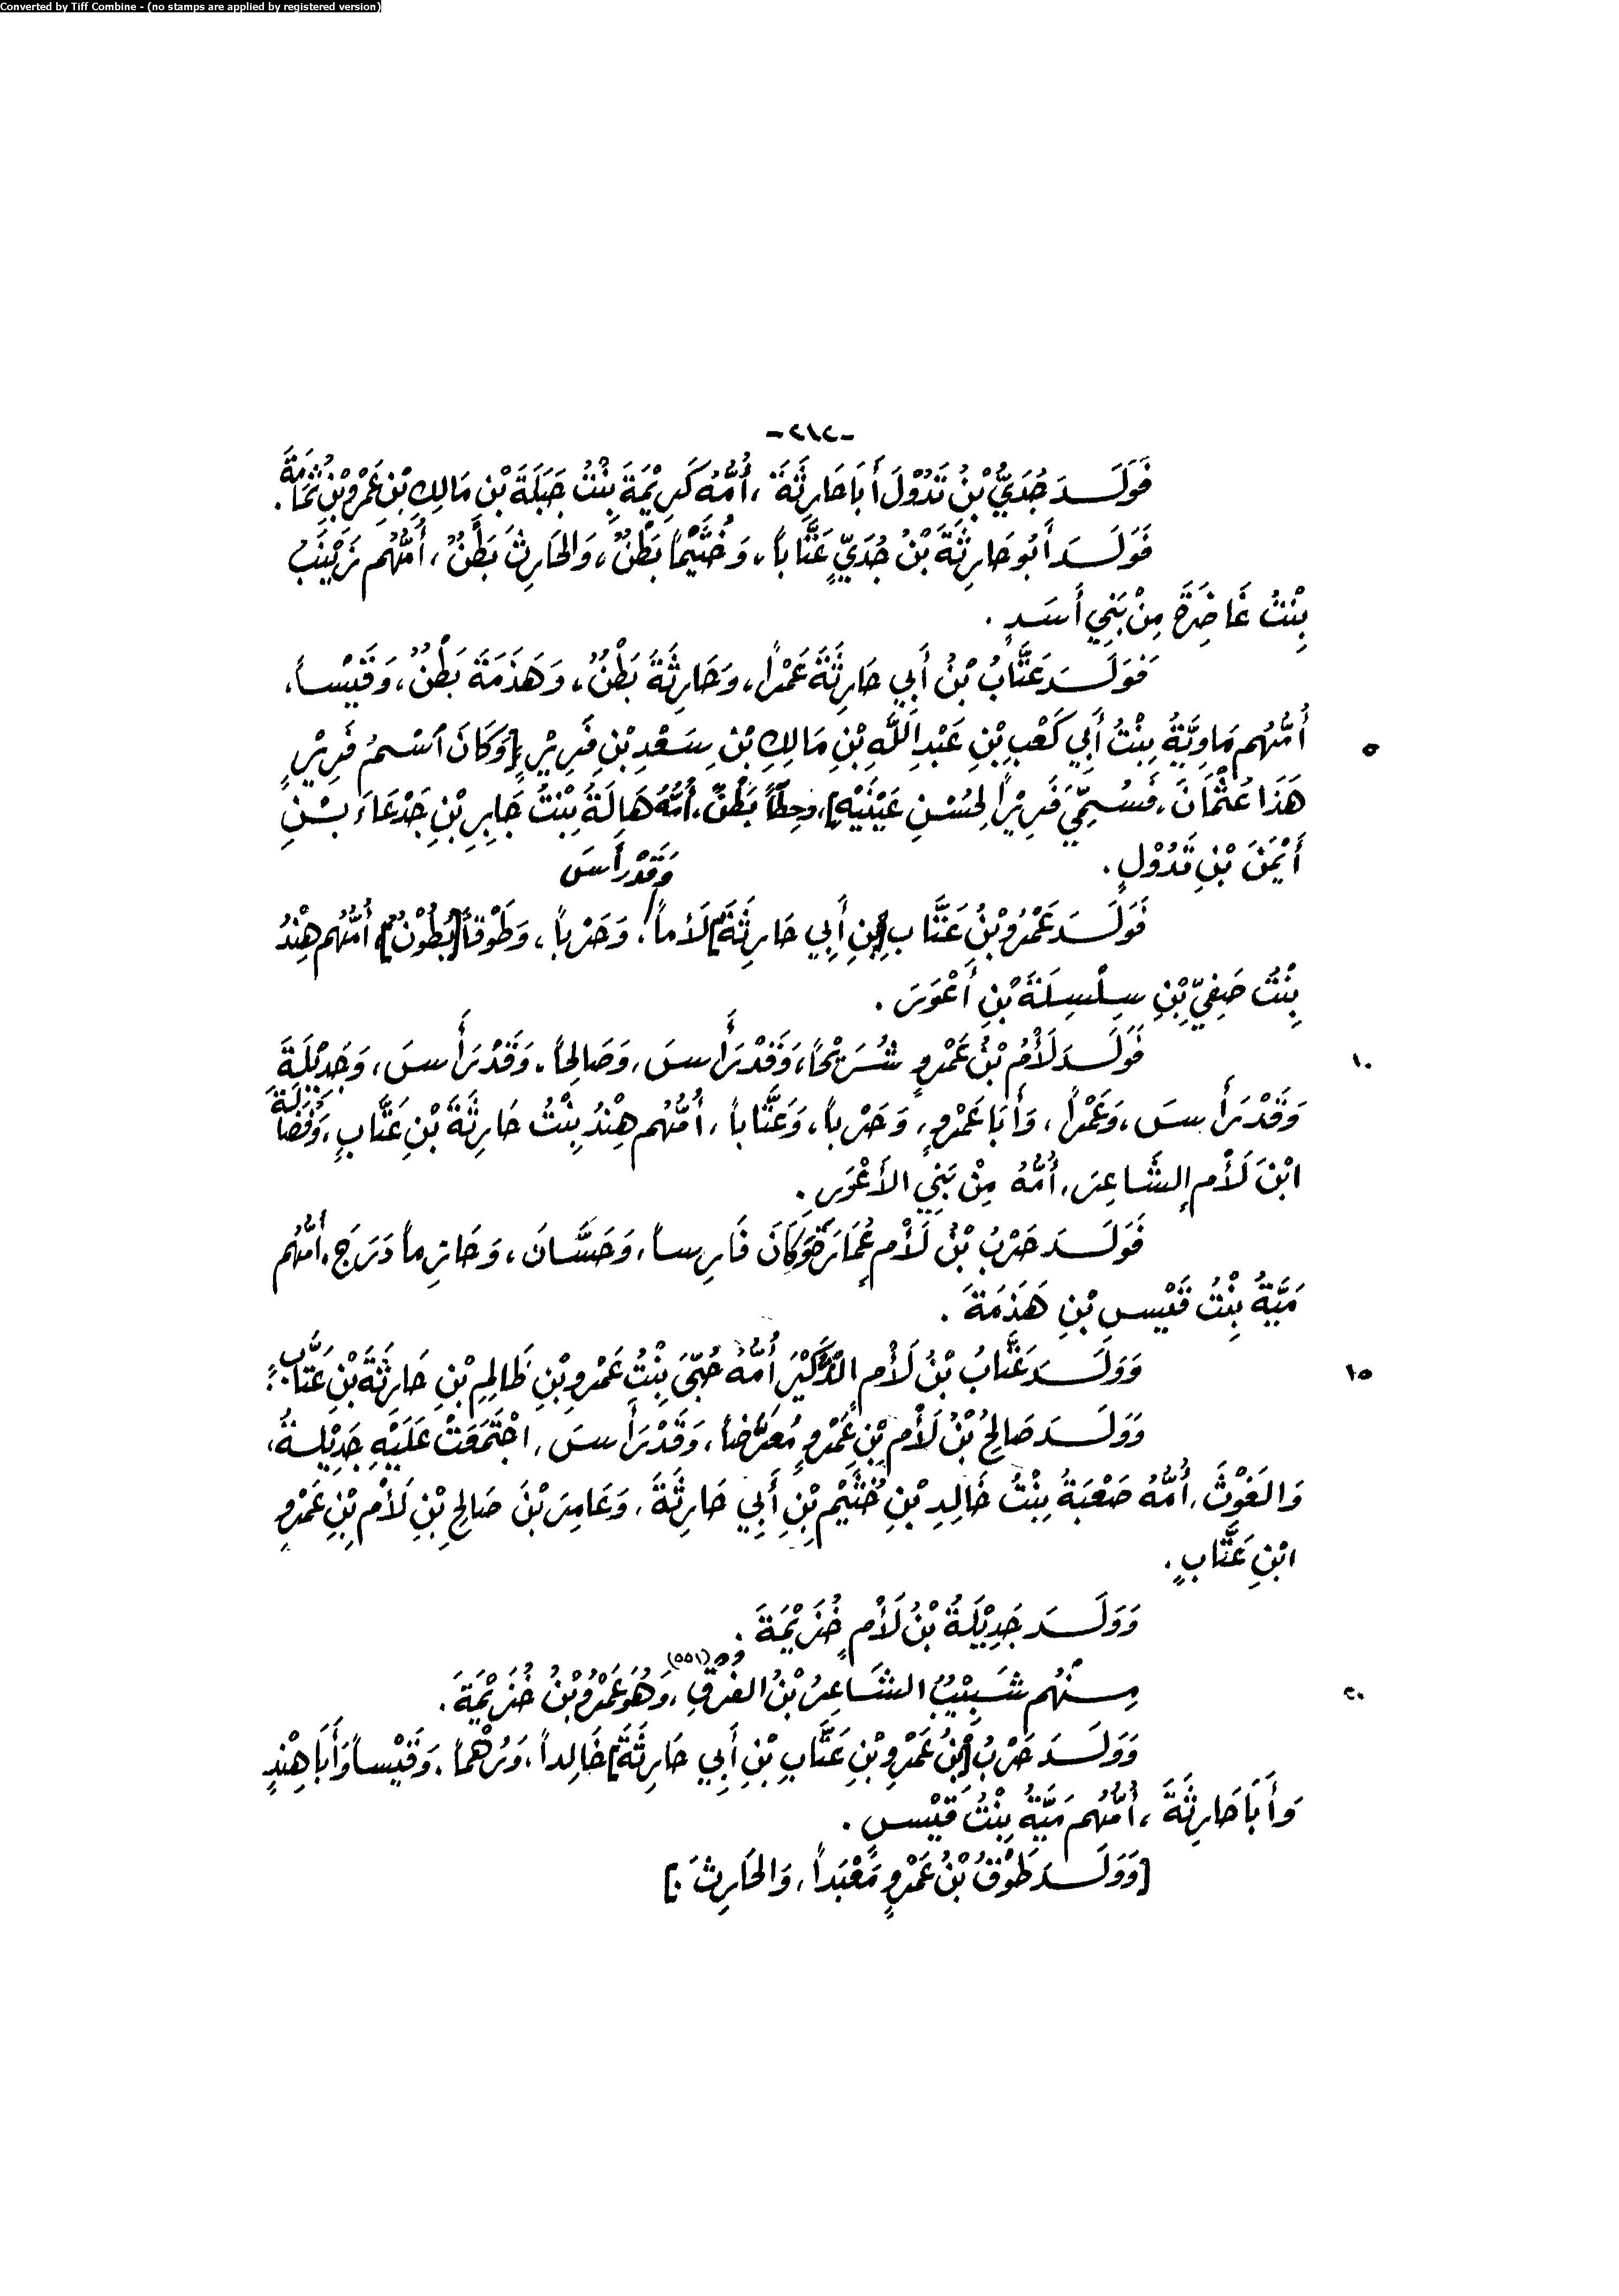 Converted by Tiff Combine - (no stamps are applied by registered version)
-٢١٢-
فَوَلَدَ جُدَيُّ بْنُ تَدُوْلَ أَبَا حَارِثَةَ، أُمُّهُ كَرِيْمَةُ بِنْتُ جَبَلَةَ بْنِ مَالِكِ بْنِ عَمْرِو بْنِ ثُمَامَةَ.
فَوَلَدَ أَبُو حَارِثَةَ بْنُ جُدَيٍّ عَتَّاباً، وَخُثَيْماً بَطْنٌ، وَالحَارِثَ بَطْنٌ، أُمُّهُم زَيْنَبُ
بِنْتُ غَاضِرَةَ مِنْ بَنِي أَسَدٍ.
فَوَلَدَ عَتَّابُ بْنُ أَبِي حَارِثَةَ عَمْراً، وَحَارِثَةَ بَطْنٌ، وَهَذَمَةَ بَطْنٌ، وَقَيْساً،
٥ أُمُّهُم مَاوِيَّةُ بِنْتُ أَبِي كَعْبِ بْنِ عَبْدِ اللَّهِ بْنِ مَالِكِ بْنِ سَعْدِ بْنِ فَرِيْرٍ [وَكَانَ اسْمُ فَرِيْرٍ
هَذَا عُثْمَانَ، فَسُمِّيَ فَرِيْراً لِحُسْنِ عَيْنَيْهِ]، وَحِطَّاً بَطْنٌ، أُمُّهُ هَالَةُ بِنْتُ جَابِرِ بْنِ جَدْعَاءَ بْنِ
أَيْمَنَ بْنِ تَدُوْلٍ.
وَقَدْ رَأَسَ
فَوَلَدَ عَمْرُو بْنُ عَتَّابِ [بْنِ أَبِي حَارِثَةَ] لَأْماً، وَحَرْباً، وَطَوْقاً [بُطُوْنٌ] أُمُّهُم هِنْدُ
بِنْتُ صَيْفِيِّ بْنِ سِلْسِلَةَ بْنِ أَعْوَرَ.
١٠ فَوَلَدَ لَأْمُ بْنُ عَمْرٍو شُرَيْحاً، وَقَدْ رَأَسَ، وَصَالِحاً، وَقَدْ رَأَسَ، وَجَدِيْلَةَ
وَقَدْ رَأَسَ، وَعَمْراً، وَأَبَا عَمْرٍو، وَحَرْباً، وَعَتَّاباً، أُمُّهُم هِنْدُ بِنْتُ حَارِثَةَ بْنِ عَتَّابٍ، وَفَضَالَةَ
ابْنَ لَأْمٍ الشَّاعِرَ، أُمُّهُ مِنْ بَنِي الأَعْوَرِ.
فَوَلَدَ حَرْبُ بْنُ لَأْمٍ عُمَارَةَ وَكَانَ فَارِساً، وَحَسَّانَ، وَحَازِماً دَرَجَ، أُمُّهُم
مَيَّةُ بِنْتُ قَيْسِ بْنِ هَذَمَةَ.
١٥ وَوَلَدَ عَتَّابُ بْنُ لَأْمٍ أُمُّهُ حُبَّى بِنْتُ عَمْرِو بْنِ ظَالِمِ بْنِ حَارِثَةَ بْنِ عَتَّابٍ.
وَوَلَدَ صَالِحُ بْنُ لَأْمِ بْنِ عَمْرٍو مُعَرِّضاً، وَقَدْ رَأَسَ، اجْتَمَعَتْ عَلَيْهِ جَدِيْلَةُ،
وَالغَوْثُ، أُمُّهُ صَعْبَةُ بِنْتُ خَالِدِ بْنِ خُثَيْمِ بْنِ أَبِي حَارِثَةَ، وَعَامِرَ بْنَ صَالِحِ بْنِ لَأْمِ بْنِ عَمْرِو
ابْنِ عَتَّابٍ.
وَوَلَدَ جَدِيْلَةُ بْنُ لَأْمٍ خُزَيْمَةَ.
٢٠ مِنْهُم شَبِيْبٌ الشَّاعِرُ بْنُ (٥٥١)، وَهُوَ عَمْرُو بْنُ خُزَيْمَةَ.
وَوَلَدَ حَرْبُ [بْنُ عَمْرِو بْنِ عَتَّابِ بْنِ أَبِي حَارِثَةَ] خَالِداً، وَرُهْماً، وَقَيْساً وَأَبَا هِنْدٍ
وَأَبَا حَارِثَةَ، أُمُّهُم مَيَّةُ بِنْتُ قَيْسٍ.
[وَوَلَدَ طَوْقُ بْنُ عَمْرٍو مَعْبَداً، وَالحَارِثَ.]